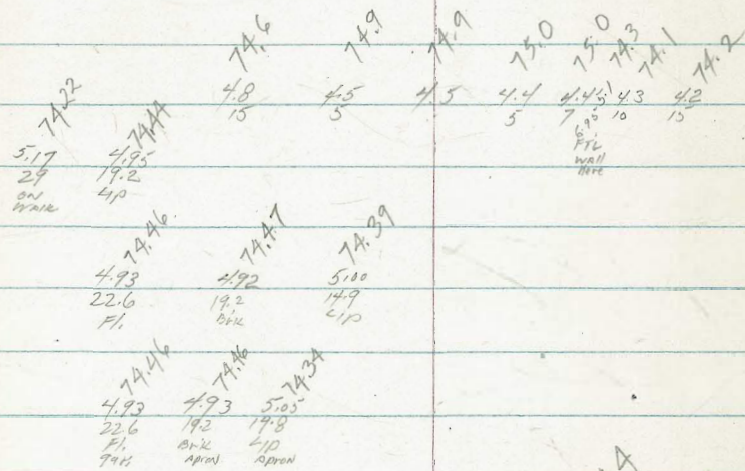 74.6 74.9 74.9 75.0 75.0 74.3 74.1 74.2
4.8 4.5 4.5 4.4 4.4 4.3 4.2
15 5 5 7 10 15
FTL
wall
here
74.22 74.44
5.17 4.95
29 19.2
on Lip
walk
74.46 74.47 74.39
4.93 4.92 5.00
22.6 19.2 14.9
Fl. Brk Lip
74.46 74.46 74.34
4.93 4.93 5.05
22.6 19.2 19.8
Fl. Brk Lip
gar. Apron Apron